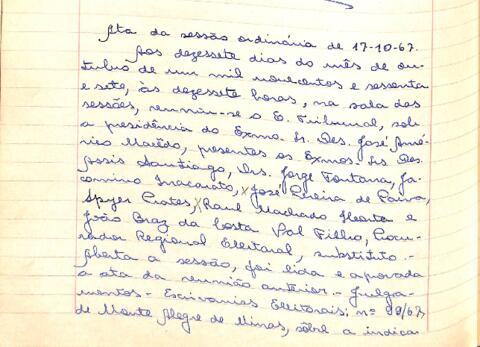 Ata da sessão ordinária de 17-10-67.
Aos dezessete dias do mês de ou-
tubro de um mil novecentos e sessenta
e sete, às dezessete horas, na sala das
sessões, reuniu-se o E. Tribunal, sob
a presidência do Exmo. Sr. Des. José Amé-
rico Macêdo, presentes os Exmos. Srs. Des.
Assis Santiago, Drs. Jorge Fontana, Ja-
comino Inacarato, José Pereira de Paiva,
Spyer Prates, Raul Machado Horta e
João Braz da Costa Val Filho, Procu-
rador Regional Eleitoral, substituto. -
Aberta a sessão, foi lida e aprovada
a ata da reunião anterior. - Julga-
mentos - Escrivanias Eleitorais: nº 98/67,
de Monte Alegre de Minas, sôbre a indica-